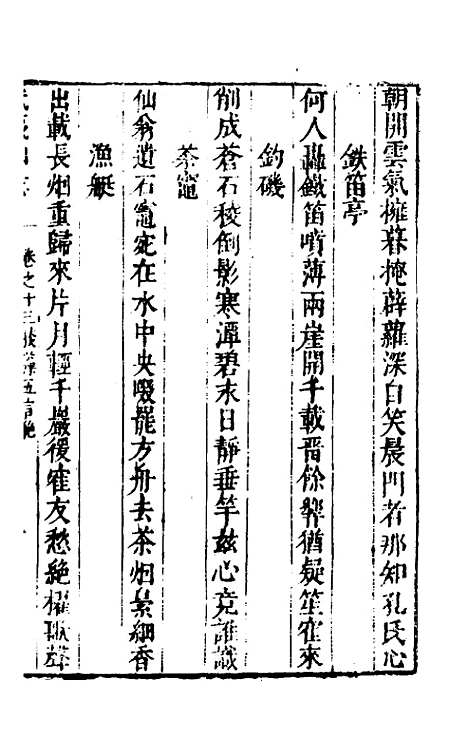 朝開雲氣擁暮掩薜蘿深自笑晨門者那知孔氏心
鉄笛亭
何人轟鐵笛噴薄兩崖開千載晋餘響猶疑笙雀來
釣磯
削成蒼石稜倒影寒潭碧末日靜垂竿兹心竟誰識
茶竈
仙翁遺石竈宛在水中央啜罷方舟去茶烟裊細香
漁艇
出載長烟重歸來片月輕千巖後寉友愁絶櫂歌聲
卷之十三 五言絶